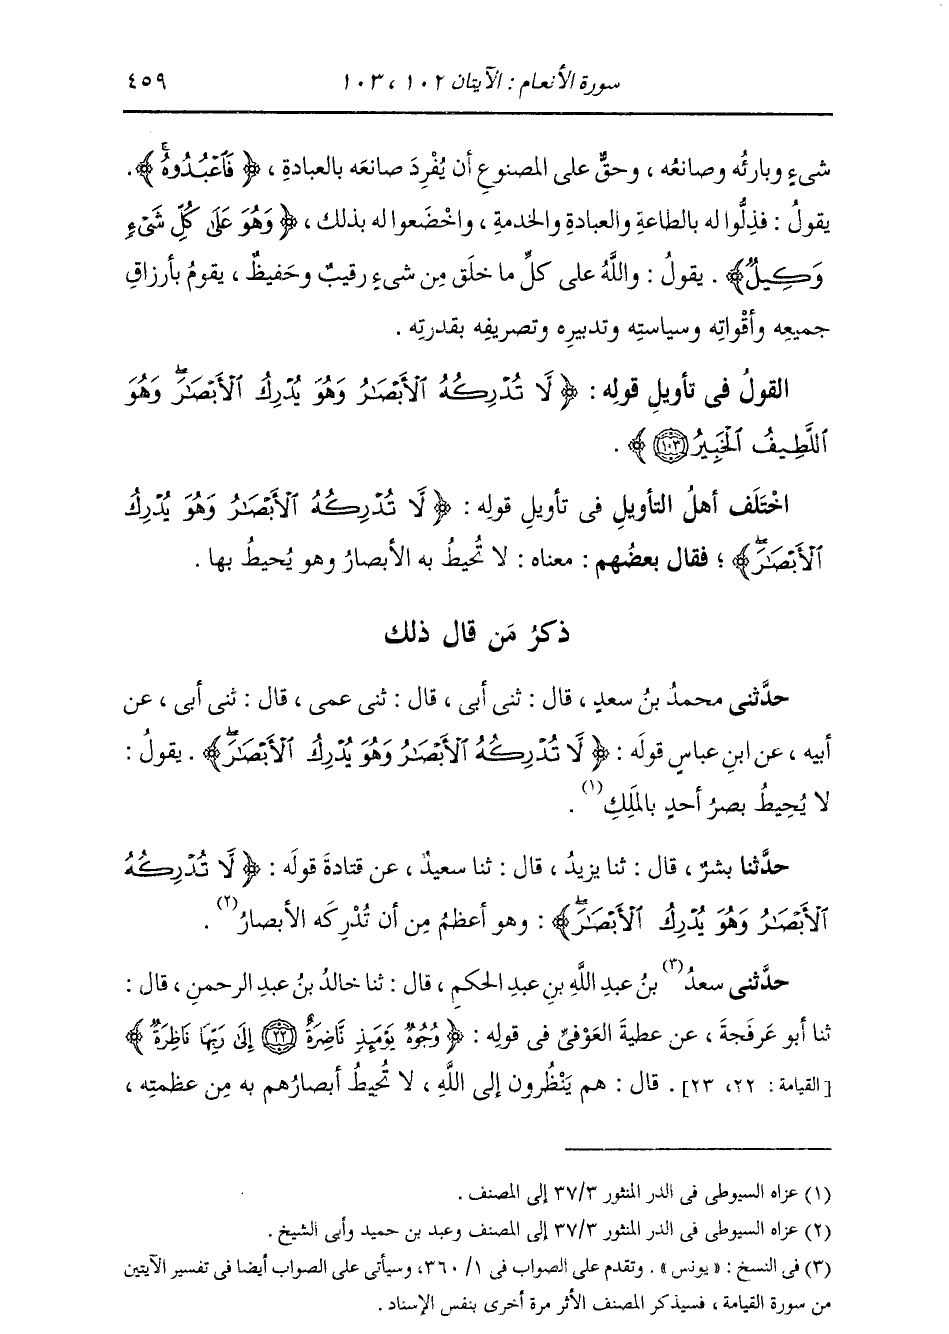 سورة الأنعام : الآيتان ١٠٢ ، ١٠٣ ٤٥٩
شىءٍ وبارئُه وصانعُه ، وحقٌّ على المصنوعِ أن يُفْرِدَ صانعَه بالعبادةِ ، ﴿ فَاعْبُدُوهُ ﴾ .
يقولُ : فذِلُّوا له بالطاعةِ والعبادةِ والخدمةِ ، واخْضَعوا له بذلك ، ﴿ وَهُوَ عَلَىٰ كُلِّ شَىْءٍ
وَكِيلٌ ﴾ . يقولُ : واللَّهُ على كلِّ ما خلَق مِن شىءٍ رقيبٌ وحَفيظٌ ، يقومُ بأرزاقِ
جميعِه وأقْواتِه وسياستِه وتدبيرِه وتصريفِه بقدرتِه .
القولُ فى تأويلِ قولِه : ﴿ لَّا تُدْرِكُهُ ٱلْأَبْصَٰرُ وَهُوَ يُدْرِكُ ٱلْأَبْصَٰرَ ۖ وَهُوَ
ٱللَّطِيفُ ٱلْخَبِيرُ ١٠٣ ﴾ .
اخْتَلَف أهلُ التأويلِ فى تأويلِ قولِه : ﴿ لَّا تُدْرِكُهُ ٱلْأَبْصَٰرُ وَهُوَ يُدْرِكُ
ٱلْأَبْصَٰرَ ۖ ﴾ ؛ فقال بعضُهم : معناه : لا تُحيطُ به الأبصارُ وهو يُحيطُ بها .
ذكرُ مَن قال ذلك
حدَّثنى محمدُ بنُ سعدٍ ، قال : ثنى أبى ، قال : ثنى عمى ، قال : ثنى أبى ، عن
أبيه ، عن ابنِ عباسٍ قولَه : ﴿ لَّا تُدْرِكُهُ ٱلْأَبْصَٰرُ وَهُوَ يُدْرِكُ ٱلْأَبْصَٰرَ ۖ ﴾ . يقولُ :
لا يُحِيطُ بصرُ أحدٍ بالمَلِكِ (١) .
حدَّثنا بشرٌ ، قال : ثنا يزيدُ ، قال : ثنا سعيدٌ ، عن قتادةَ قولَه : ﴿ لَّا تُدْرِكُهُ
ٱلْأَبْصَٰرُ وَهُوَ يُدْرِكُ ٱلْأَبْصَٰرَ ۖ ﴾ : وهو أعظمُ مِن أن تُدْرِكَه الأبصارُ (٢) .
حدَّثنى سعدُ (٣) بنُ عبدِ اللَّهِ بنِ عبدِ الحكمِ ، قال : ثنا خالدُ بنُ عبدِ الرحمنِ ، قال :
ثنا أبو عَرفَجةَ ، عن عطيةَ العَوْفىِّ فى قولِه : ﴿ وُجُوهٌ يَوْمَئِذٍ نَّاضِرَةٌ ٢٢ إِلَىٰ رَبِّهَا نَاظِرَةٌ ﴾
[ القيامة : ٢٢، ٢٣] . قال : هم يَنْظُرون إلى اللَّهِ ، لا تُحيطُ أبصارُهم به مِن عظمتِه ،
(١) عزاه السيوطى فى الدر المنثور ٣٧/٣ إلى المصنف .
(٢) عزاه السيوطى فى الدر المنثور ٣٧/٣ إلى المصنف وعبد بن حميد وأبى الشيخ .
(٣) فى النسخ : « يونس » . وتقدم على الصواب فى ١/ ٣٦٠، وسيأتى على الصواب أيضا فى تفسير الآيتين
من سورة القيامة ، فسيذكر المصنف الأثر مرة أخرى بنفس الإسناد .